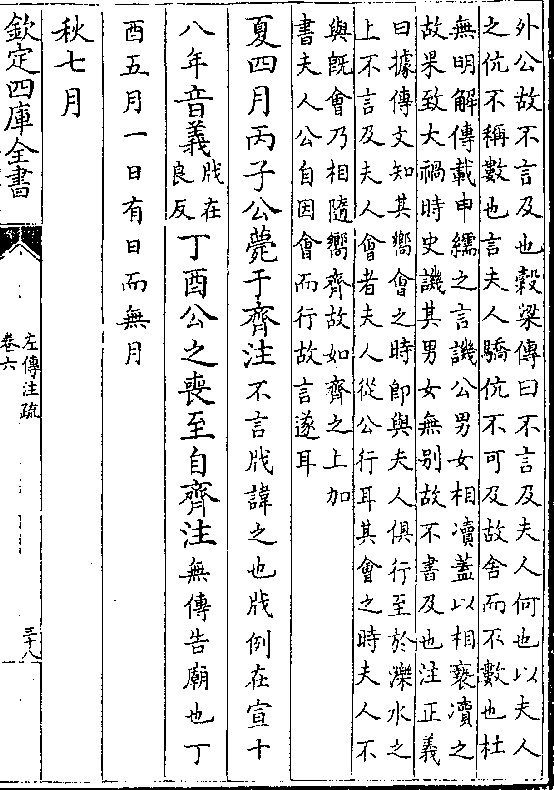 外公故不言及也穀梁傳曰不言及夫人何也以夫人
之伉不稱數也言夫人驕伉不可及故舍而不數也杜
無明解傳載申繻之言譏公男女相凟蓋以相褻凟之
故果致大禍時史譏其男女無别故不書及也注正義
曰據傳文知其嚮會之時即與夫人俱行至於濼水之
上不言及夫人會者夫人從公行耳其會之時夫人不
與旣會乃相隨嚮齊故如齊之上加
書夫人公自因會而行故言遂耳
夏四月丙子公薨于齊注不言戕諱之也戕例在宣十
八年音義戕在
良反
丁酉公之喪至自齊注無傳告廟也丁
酉五月一日有日而無月
秋七月
欽定四庫全書
左傳注疏
卷六
三十八